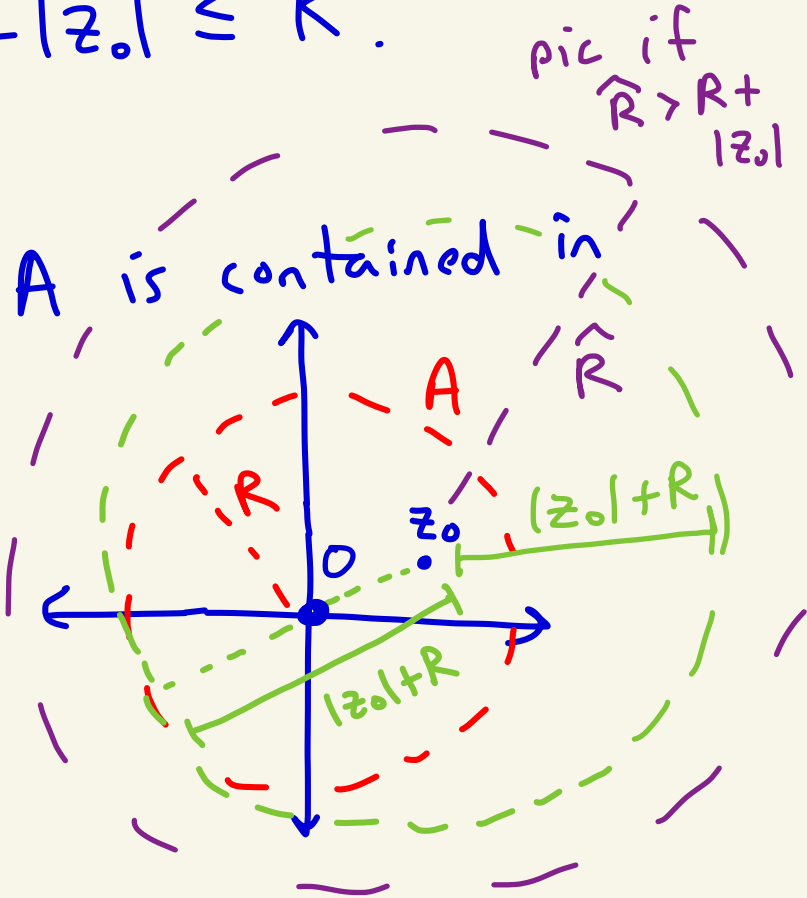 -|z₀| ≤ R.
pic if
R̂ > R +
|z₀|
A is contained in
R̂
A
R
|z₀|+R
z₀
O
|z₀|+R